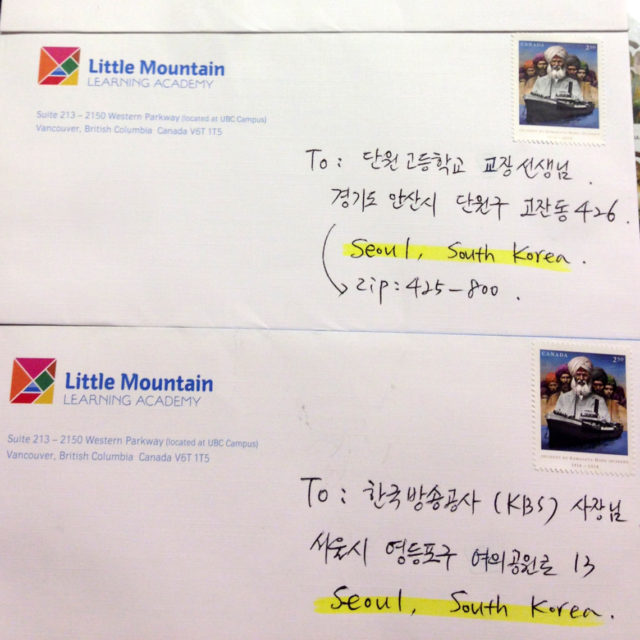 Little Mountain
LEARNING ACADEMY
Suite 213 – 2150 Western Parkway (located at UBC Campus)
Vancouver, British Columbia Canada V6T 1T5
CANADA 2.50
To : 단원고등학교 교장선생님 .
경기도 안산시 단원구 고잔동 426 .
Seoul, South Korea .
Zip : 425-800 .
Little Mountain
LEARNING ACADEMY
Suite 213 – 2150 Western Parkway (located at UBC Campus)
Vancouver, British Columbia Canada V6T 1T5
CANADA 2.50
1914 - 2014
To : 한국방송공사 (KBS) 사장님
서울시 영등포구 여의공원로 13
Seoul, South Korea .